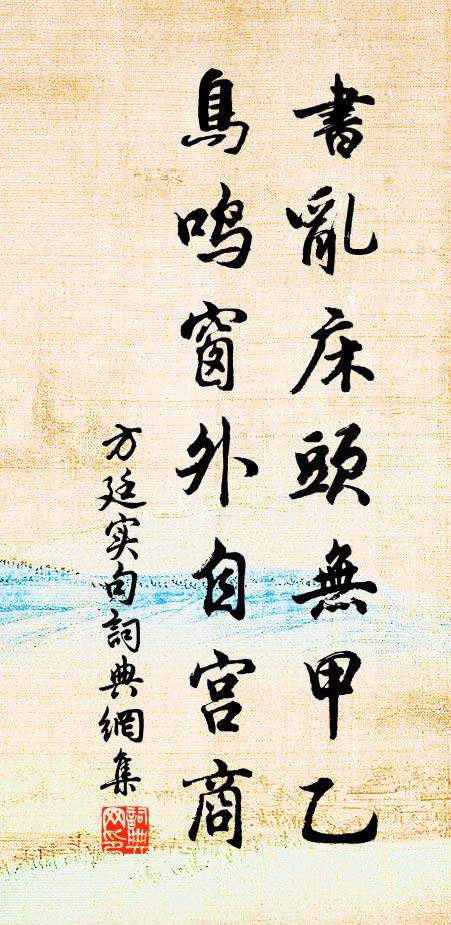 書亂床頭無甲乙
鳥鳴窗外自宫商
方廷实句詞典網集
詞典网印